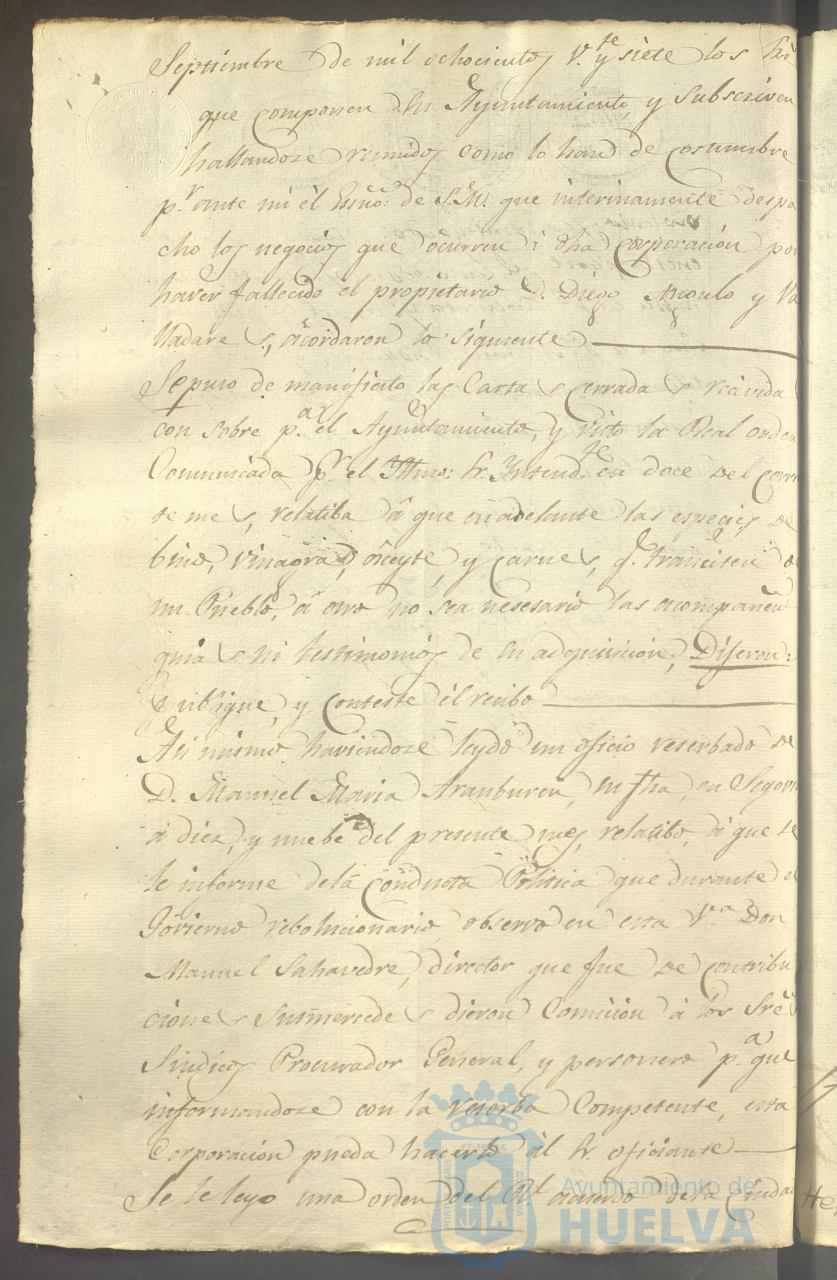 Septiembre de mil ochocientos v.te y siete los Sres
que componen su Ayuntamiento y subscriven
hallandose reunidos como lo han de costumbre
p.r ante mi él Essno. de S.M. que interinamente despa
cho los negocios que ocurren á dha Corporación por
haver fallecido el propietario D. Diego Angulo y Va
lladares, acordaron lo siguiente
Se puso de manifiesto las Cartas cerradas recivida
con sobre p.a el Ayuntamiento, y visto la Real orden
Comunicada p.r el Illmo: Sr. Intend.te en doce del corrn
te mes, relatiba á que en adelante las especies de
bino, vinagre, aceyte, y carnes, q.e transiten de
un Pueblo, á otro no sea nesesario las acompañen
guias ni testimonios de su adquisicion, Dijeron:
Publique, y conteste él recibo
Asi mismo haviendose leydo un oficio reserbado de
D. Manuel Maria Aranburen, su fha, en Segovi
á diez, y nuebe del presente mes, relatibo, á que se
le informe dela Conducta Politica que durante el
Govierno rebolucionario, observo en esta V.a Don
Manuel Sahavedre, director que fue de contribu
ciones Susmersedes dieron Comision á los Sres
Sindicos Procurador General, y personero p.a que
informandose con la reserba Competente, esta
Corporación pueda hacerlo ál Sr. oficiante
Se le leyo una orden del Rl. acuerdo dela Ciudad
Ayuntamiento de
HUELVA